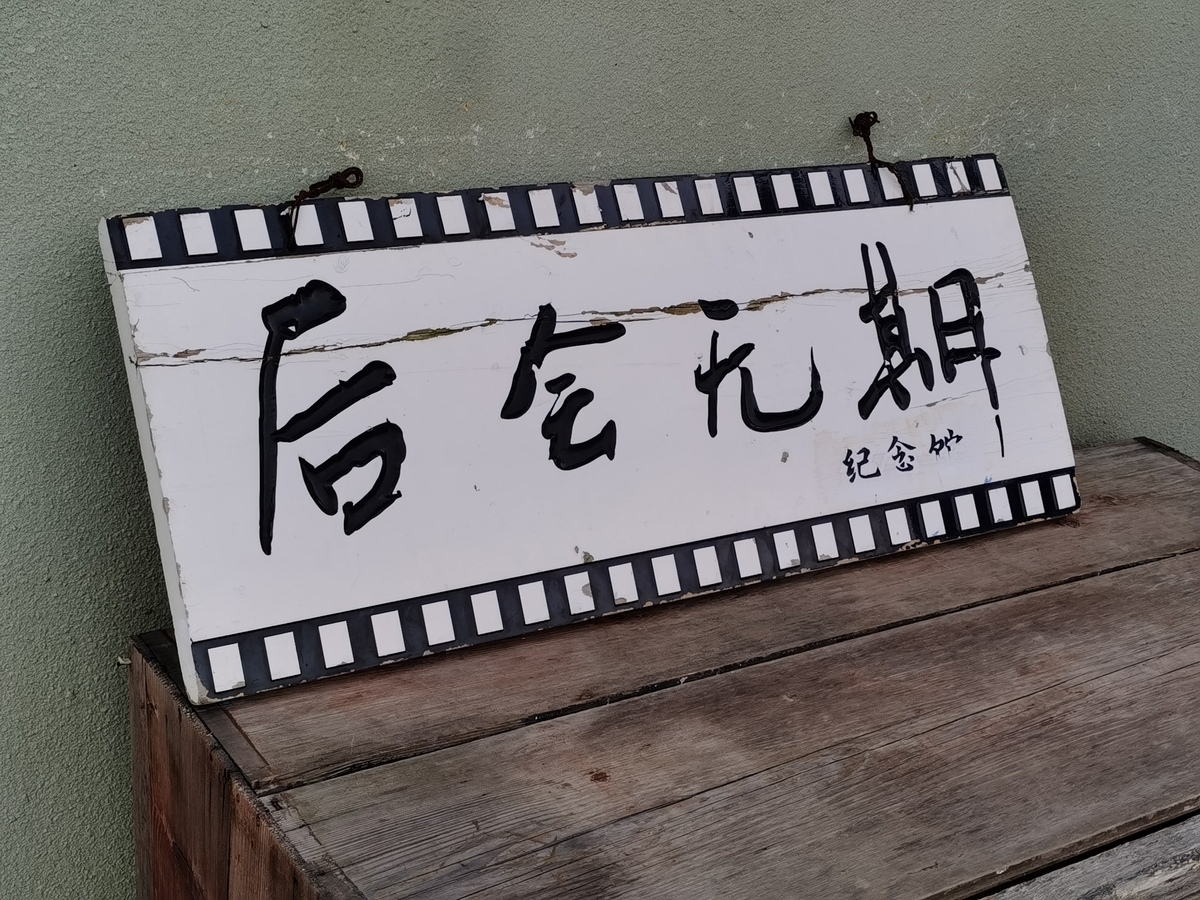 后会无期
纪念